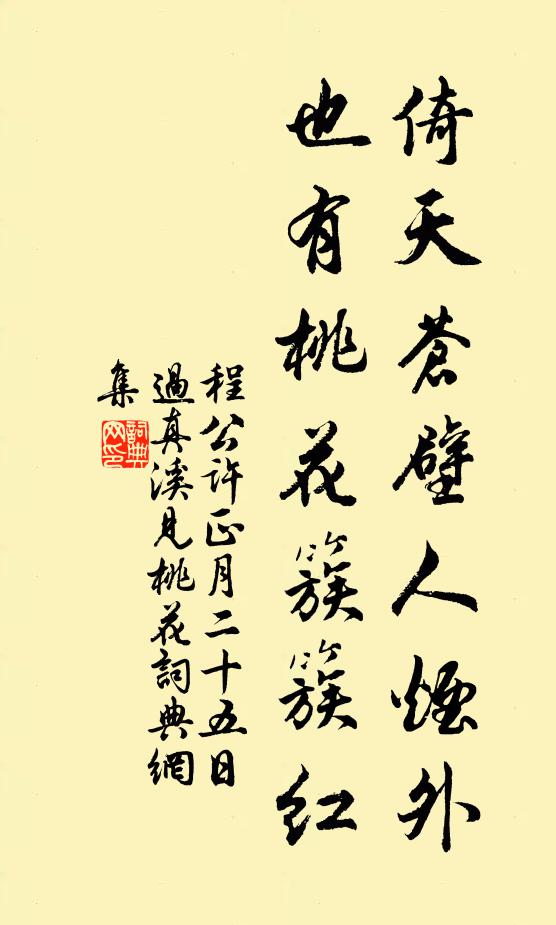 倚天蒼壁人煙外
也有桃花簇簇紅
程公许正月二十五日
過真溪見桃花詞典網
集
詞典
网印